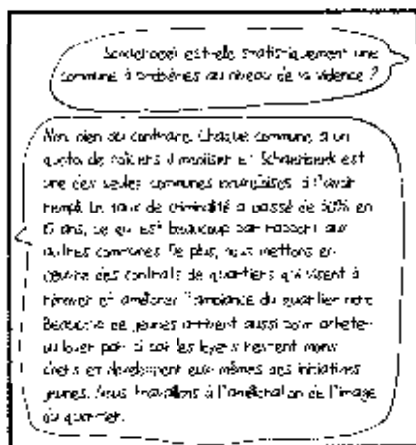 Schaerbeek est-elle statistiquement une
commune à problèmes au niveau de la violence ?
Non, bien au contraire. Chaque commune a un
quota de policiers à mobiliser et Schaerbeek est
une des seules communes bruxelloises à l'avoir
rempli. Le taux de criminalité a baissé de 30% en
15 ans, ce qui est beaucoup par rapport aux
autres communes. De plus, nous mettons en
œuvre des contrats de quartiers qui visent à
rénover et améliorer l'ambiance du quartier
Beaucoup de jeunes arrivent aussi pour acheter
ou louer par ici car les loyers restent moins
chers et développent eux-mêmes des initiatives
jeunes. Nous travaillons à l'amélioration de l'image
du quartier.